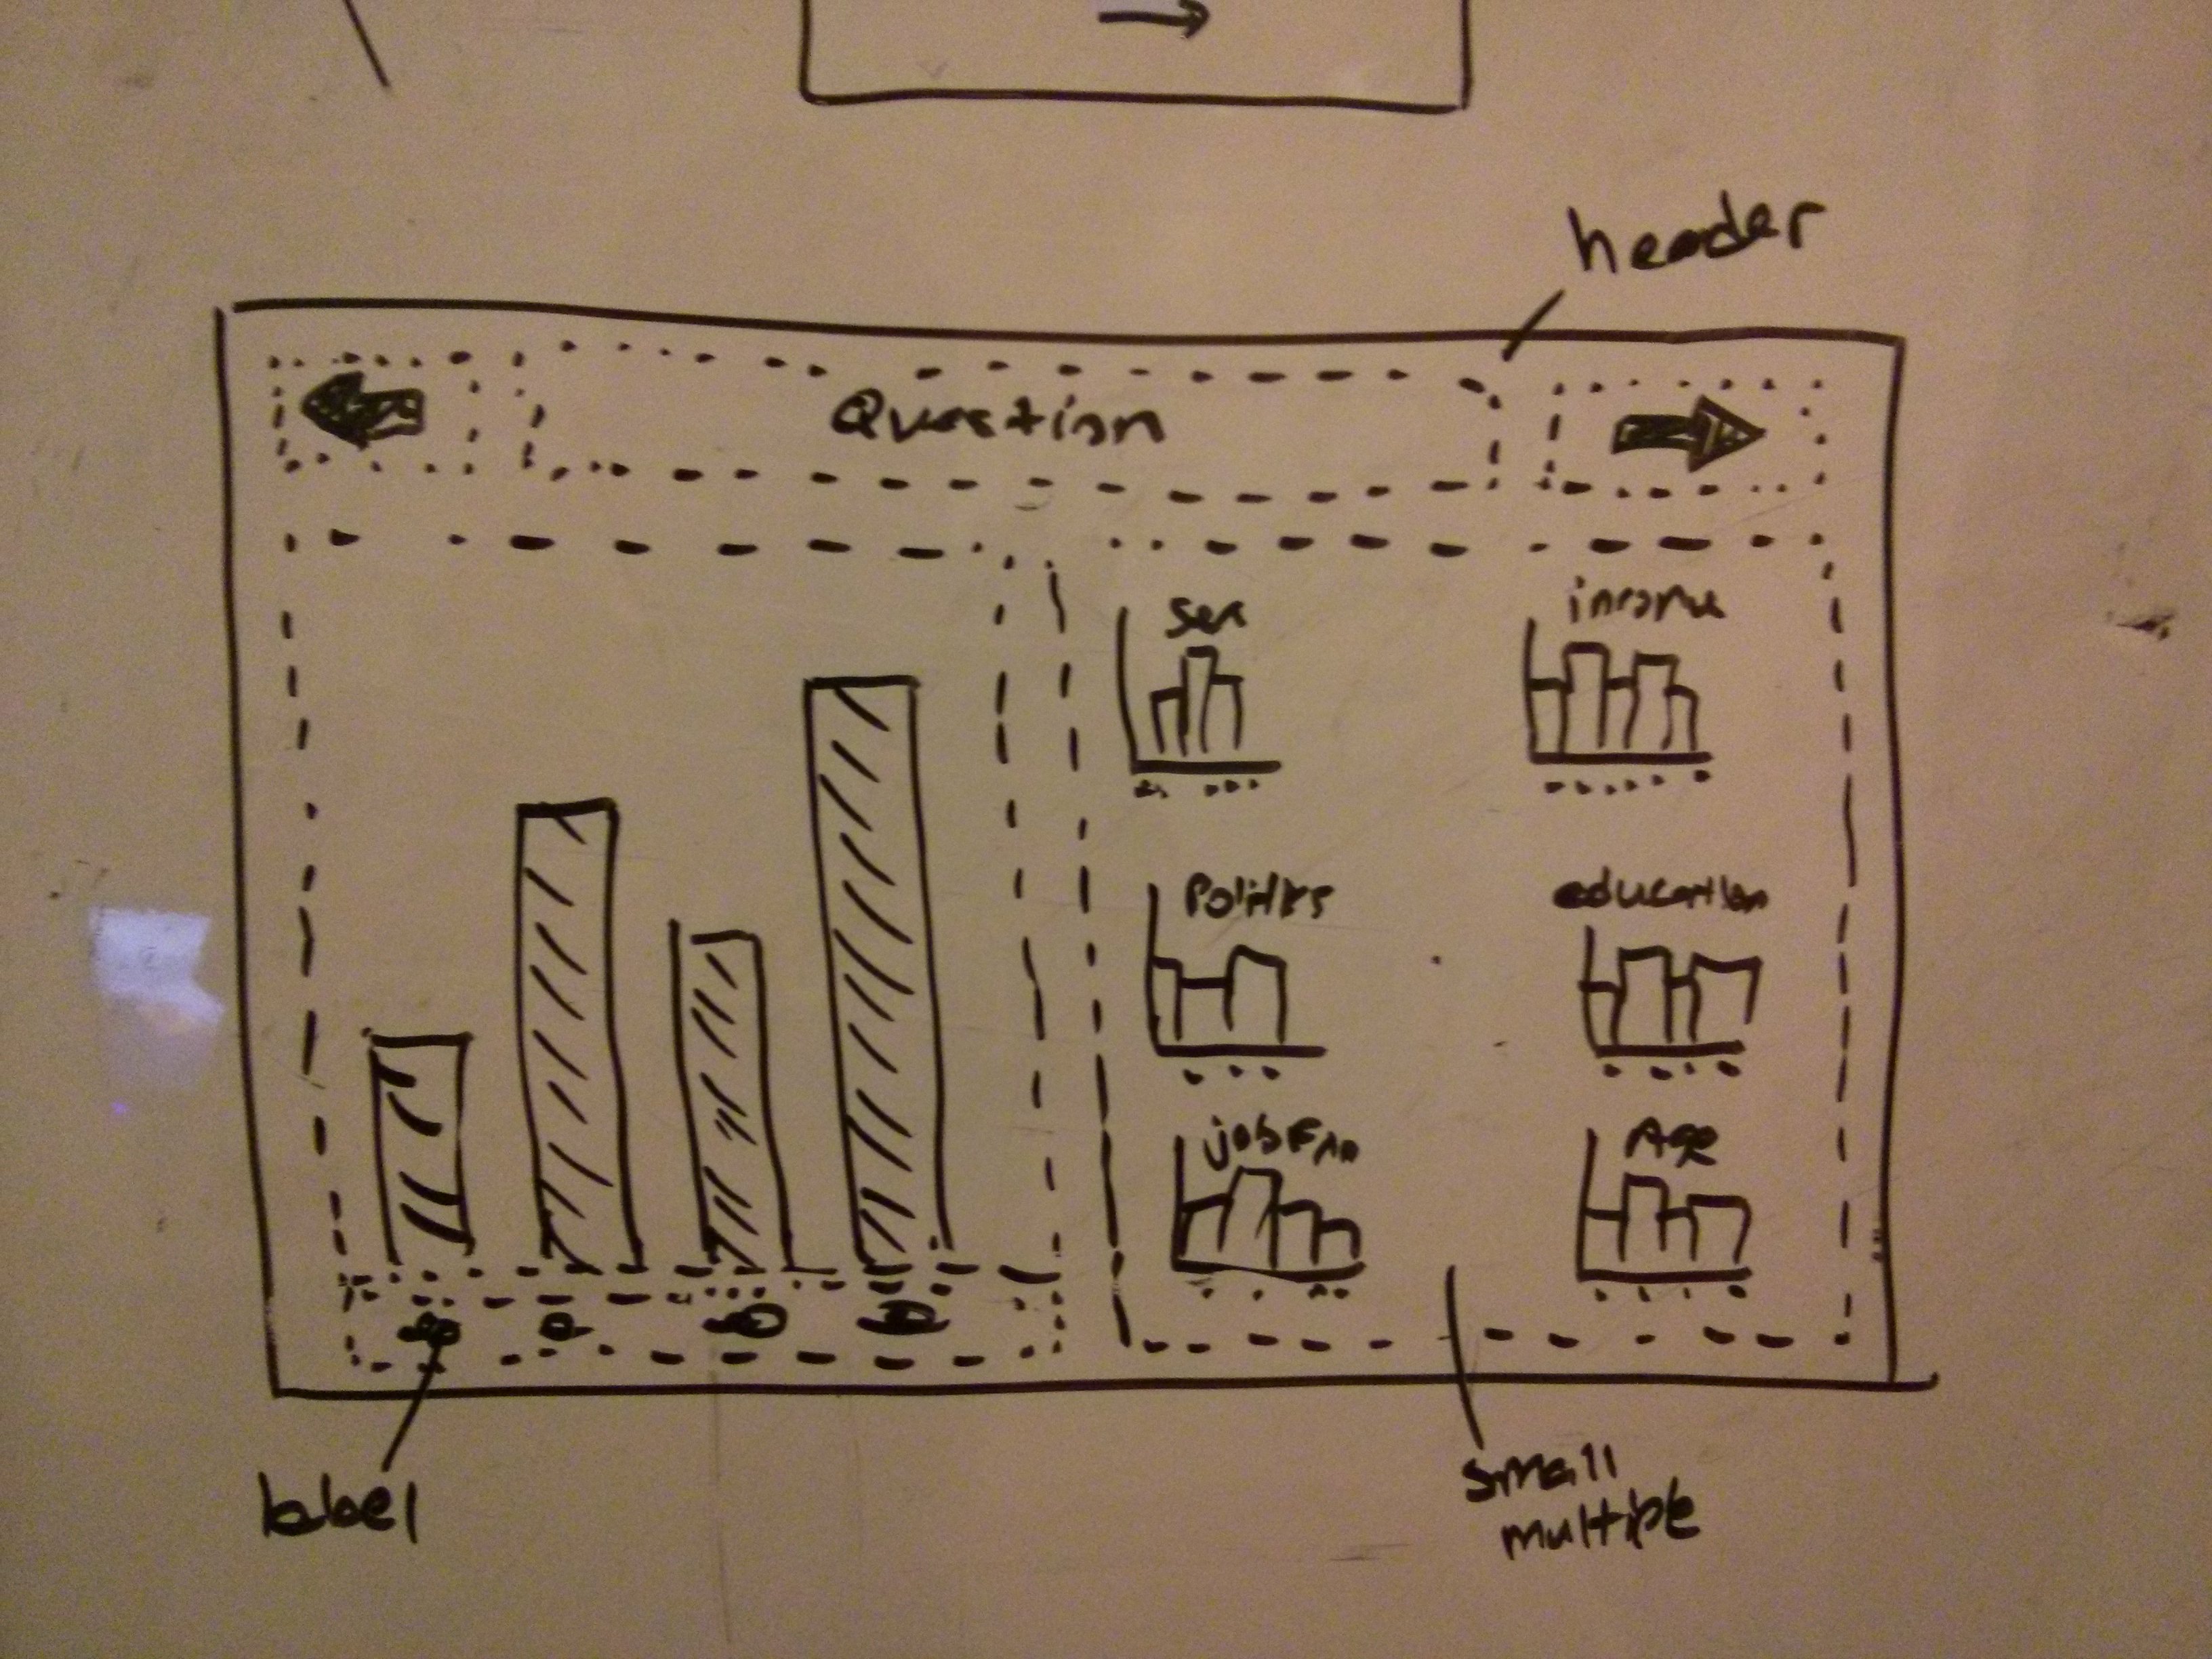 header
Question
Sex
income
Politics
education
Age
label
small
multiple